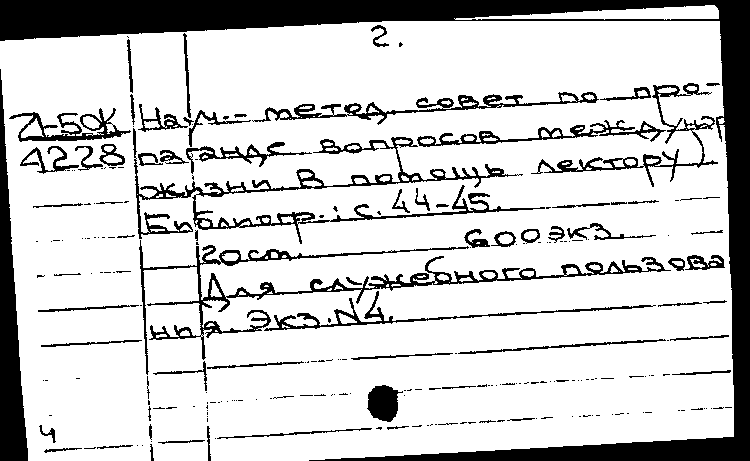 2.
21-50К Науч.-метод. совет по про-
4228 паганде вопросов междунар
жизни. В помощь лектору).
Библиогр.: с. 44-45.
20см. 600экз.
Для служебного пользова
ния. Экз.N4.
ч